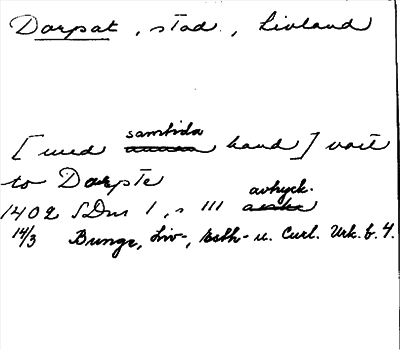 Dorpat, stad, Livland
samtida
[med hand] vart
to Darpte
avtryck.
1402 SDns 1, s 111
14/3 Bunge, Liv-, Esth- u. Curl. Urk. b. 4.